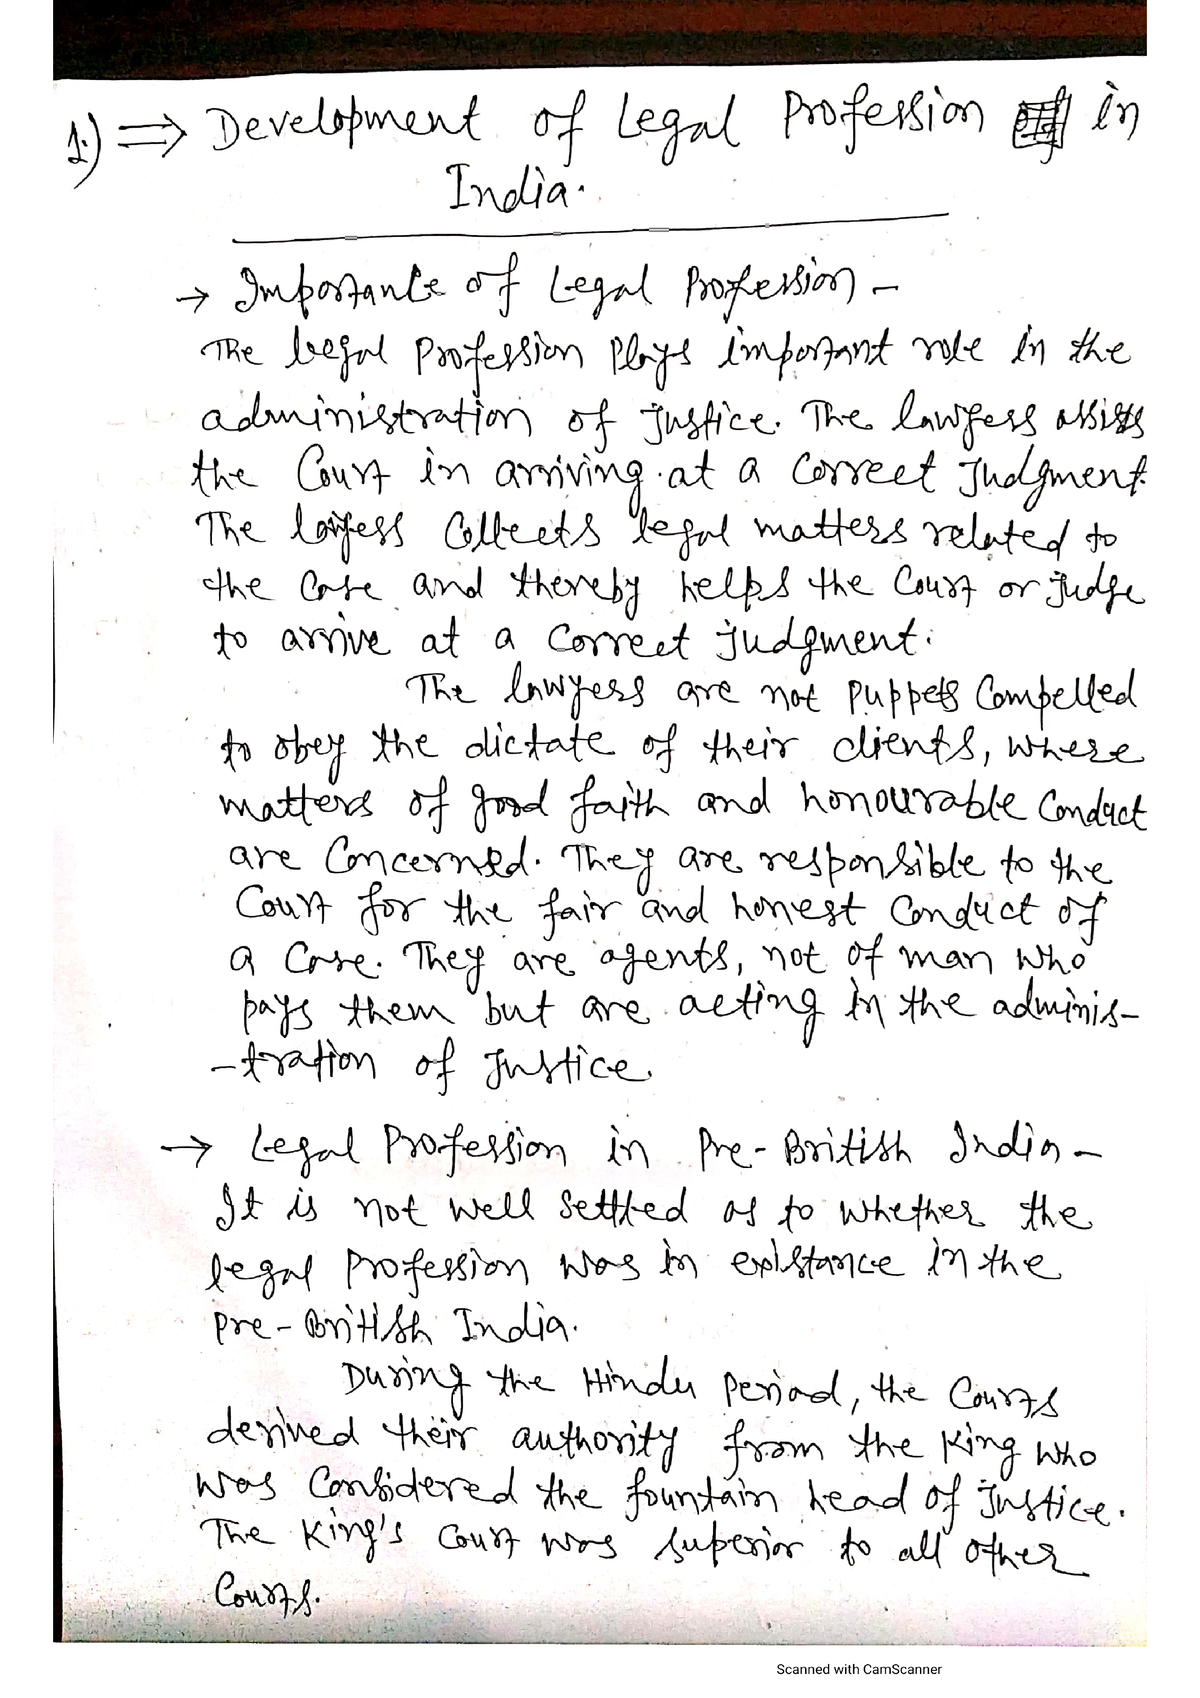 1.) ⇒ Development of Legal Profession in
India.
→ Importance of Legal Profession –
The legal Profession plays important role in the
administration of justice. The lawyers assists
the Court in arriving at a correct Judgment.
The lawyers Collects legal matters related to
the Case and thereby helps the Court or judge
to arrive at a correct judgment.
The lawyers are not puppets Compelled
to obey the dictate of their clients, where
matters of good faith and honourable Conduct
are Concerned. They are responsible to the
Court for the fair and honest Conduct of
a Case. They are agents, not of man who
pays them but are acting in the adminis-
-tration of Justice.
→ Legal Profession in Pre-British India –
It is not well settled as to whether the
legal Profession was in existance in the
Pre-British India.
During the Hindu Period, the Courts
derived their authority from the King who
was Considered the fountain head of Justice.
The King's Court was superior to all other
Courts.
Scanned with CamScanner